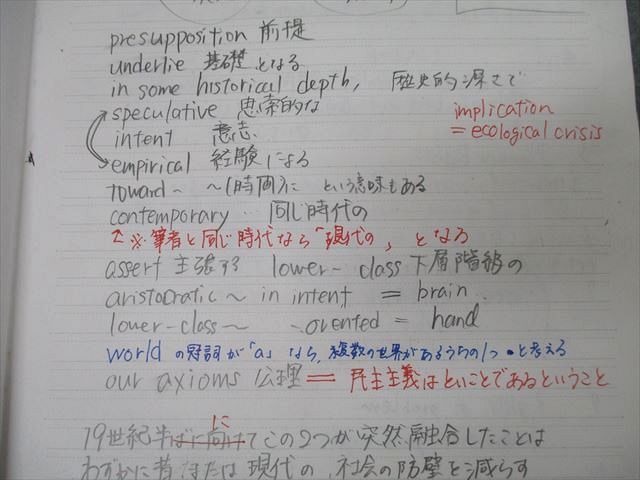 presupposition 前提
underlie 基礎となる
in some historical depth, 歴史的深さで
speculative 思索的な
implication
= ecological crisis
intent 意志
empirical 経験による
toward~ ~(時間)に という意味もある
contemporary 同じ時代の
↑※筆者と同じ時代なら「現代の」となる
assert 主張する lower-class 下層階級の
aristocratic ~ in intent = brain
lower-class ~ -oriented = hand
worldの冠詞が「a」なら、複数の世界があるうちの1つ と考える
our axioms 公理 = 民主主義は
19世紀半ばに向けてに この2つが突然融合したことは
わずかに昔または現代の、社会の防壁を減らす